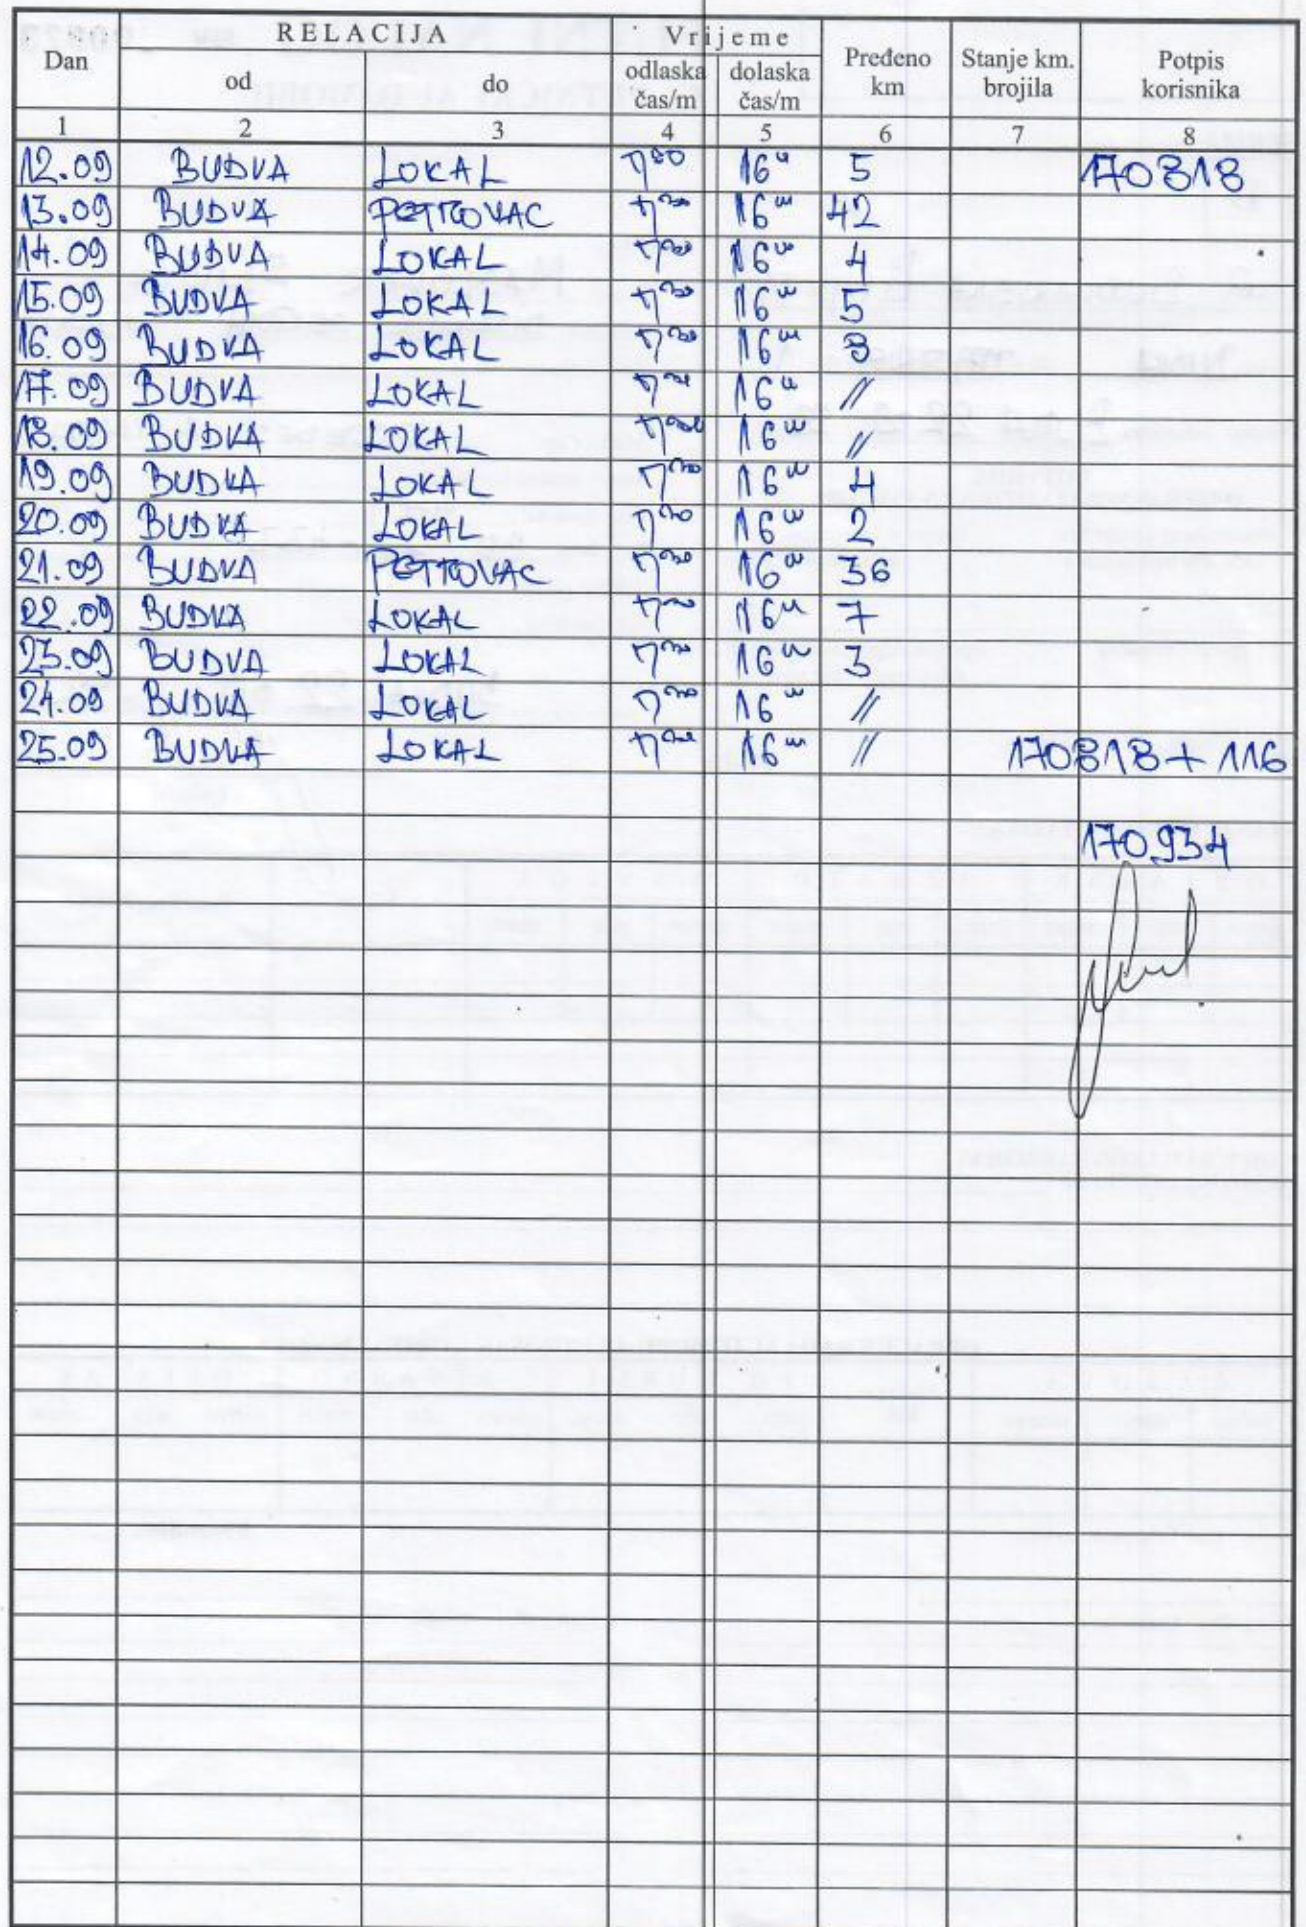 Dan RELACIJA Vrijeme Pređeno km Stanje km. brojila Potpis korisnika
od do odlaska čas/m dolaska čas/m
1 2 3 4 5 6 7 8
12.09 BUDVA LOKAL 7⁰⁰ 16⁰⁰ 5 170818
13.09 BUDVA PETROVAC 7⁰⁰ 16⁰⁰ 42
14.09 BUDVA LOKAL 7⁰⁰ 16⁰⁰ 4
15.09 BUDVA LOKAL 7⁰⁰ 16⁰⁰ 5
16.09 BUDVA LOKAL 7⁰⁰ 16⁰⁰ 8
17.09 BUDVA LOKAL 7⁰⁰ 16⁰⁰ //
18.09 BUDVA LOKAL 7⁰⁰ 16⁰⁰ //
19.09 BUDVA LOKAL 7⁰⁰ 16⁰⁰ 4
20.09 BUDVA LOKAL 7⁰⁰ 16⁰⁰ 2
21.09 BUDVA PETROVAC 7⁰⁰ 16⁰⁰ 36
22.09 BUDVA LOKAL 7⁰⁰ 16⁰⁰ 7
23.09 BUDVA LOKAL 7⁰⁰ 16⁰⁰ 3
24.09 BUDVA LOKAL 7⁰⁰ 16⁰⁰ //
25.09 BUDVA LOKAL 7⁰⁰ 16⁰⁰ // 170818 + 116
170934